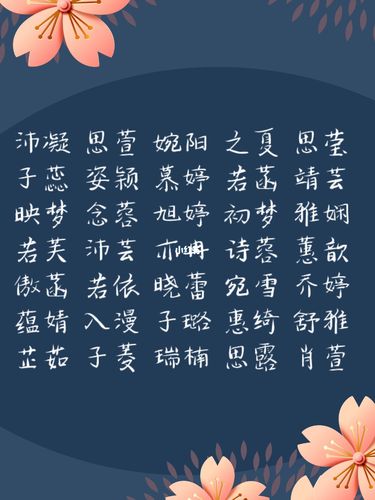 沛凝 思萱 婉阳 之夏 思莹
子蕊 姿颖 慕婷 若菡 靖芸
映梦 念蓉 旭婷 初梦 雅娴
若芙 沛芸 亦 诗蓉 蕙歆
傲菡 若依 晓蕾 宛雪 乔婷
蕴婧 入漫 子璐 惠绮 舒雅
芷茹 子菱 瑞楠 思露 肖萱